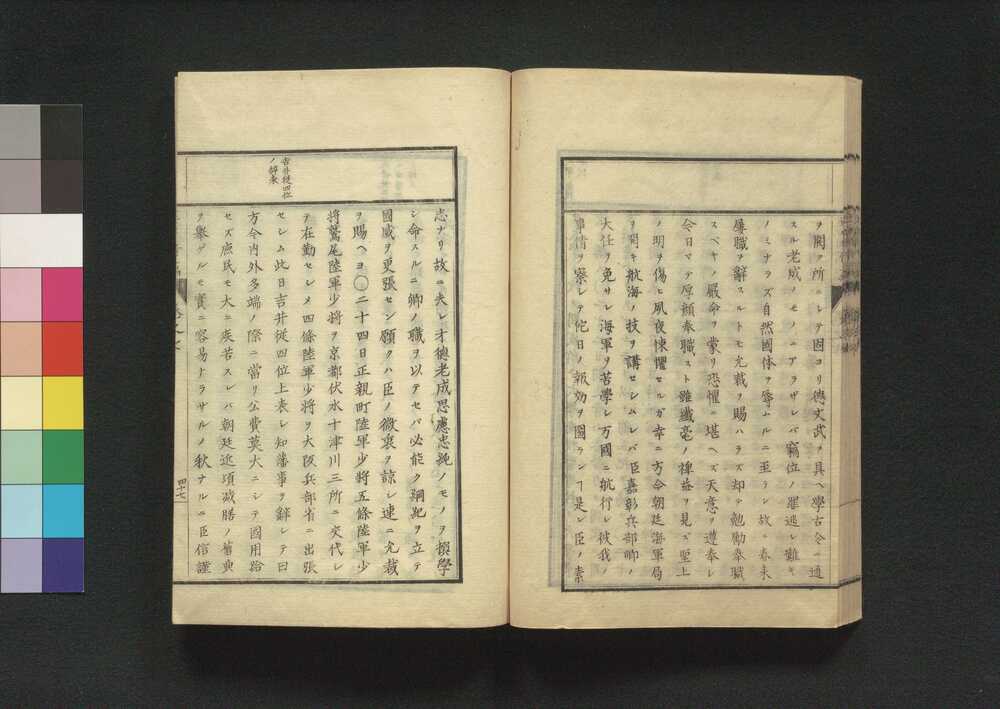 ヲ闕ク所ニシテ固ヨリ德文武ヲ具ヘ學古今ニ通
スル老成ノモノニアラザレバ竊位ノ罪逃レ難キ
ノミナラズ自然國体ヲ辱ムルニ至ラン故ニ春来
屢職ヲ辭スルトモ允裁ヲ賜ハラズ却テ勉勵奉職
スベキノ嚴命ヲ蒙リ恐懼ニ堪ヘズ天意ヲ遵奉シ
今日マテ厚顔奉職スト雖纖毫ノ裨益ヲ見ズ聖上
ノ明ヲ傷ヒ夙夜悚懼セルガ幸ニ方今朝廷海軍局
ヲ開キ航海ノ技ヲ講セシムレバ臣嘉彰兵部卿ノ
大任ヲ免サレ海軍ヲ苦學シ万國ニ航行シ彼我ノ
事情ヲ察シテ他日ノ報効ヲ圖ランヿ是レ臣ノ素
志ナリ故ニ夫レ才德老成思慮忠純ノモノヲ撰擧
シ命スルニ卿ノ職ヲ以テセバ必能ク綱紀ヲ立テ
國威ヲ更張セン願クハ臣ノ微衷ヲ諒シ速ニ允裁
ヲ賜ヘヨ〇二十四日正親町陸軍少將五條陸軍少
將鷲尾陸軍少將ヲ京都伏水十津川三所ニ交代シ
テ在勤セシメ四條陸軍少將ヲ大阪兵部省ニ出張
セシム此日吉井従四位上表シ知藩事ヲ辭シテ曰
吉井従四位
ノ辭表
方今内外多端ノ際ニ當リ公費莫大ニシテ國用給
セズ庶民モ大ニ疾苦スレバ朝廷近頃减膳ノ舊典
ヲ擧ゲルモ實ニ容易ナラサルノ秋ナルニ臣信謹
四十七